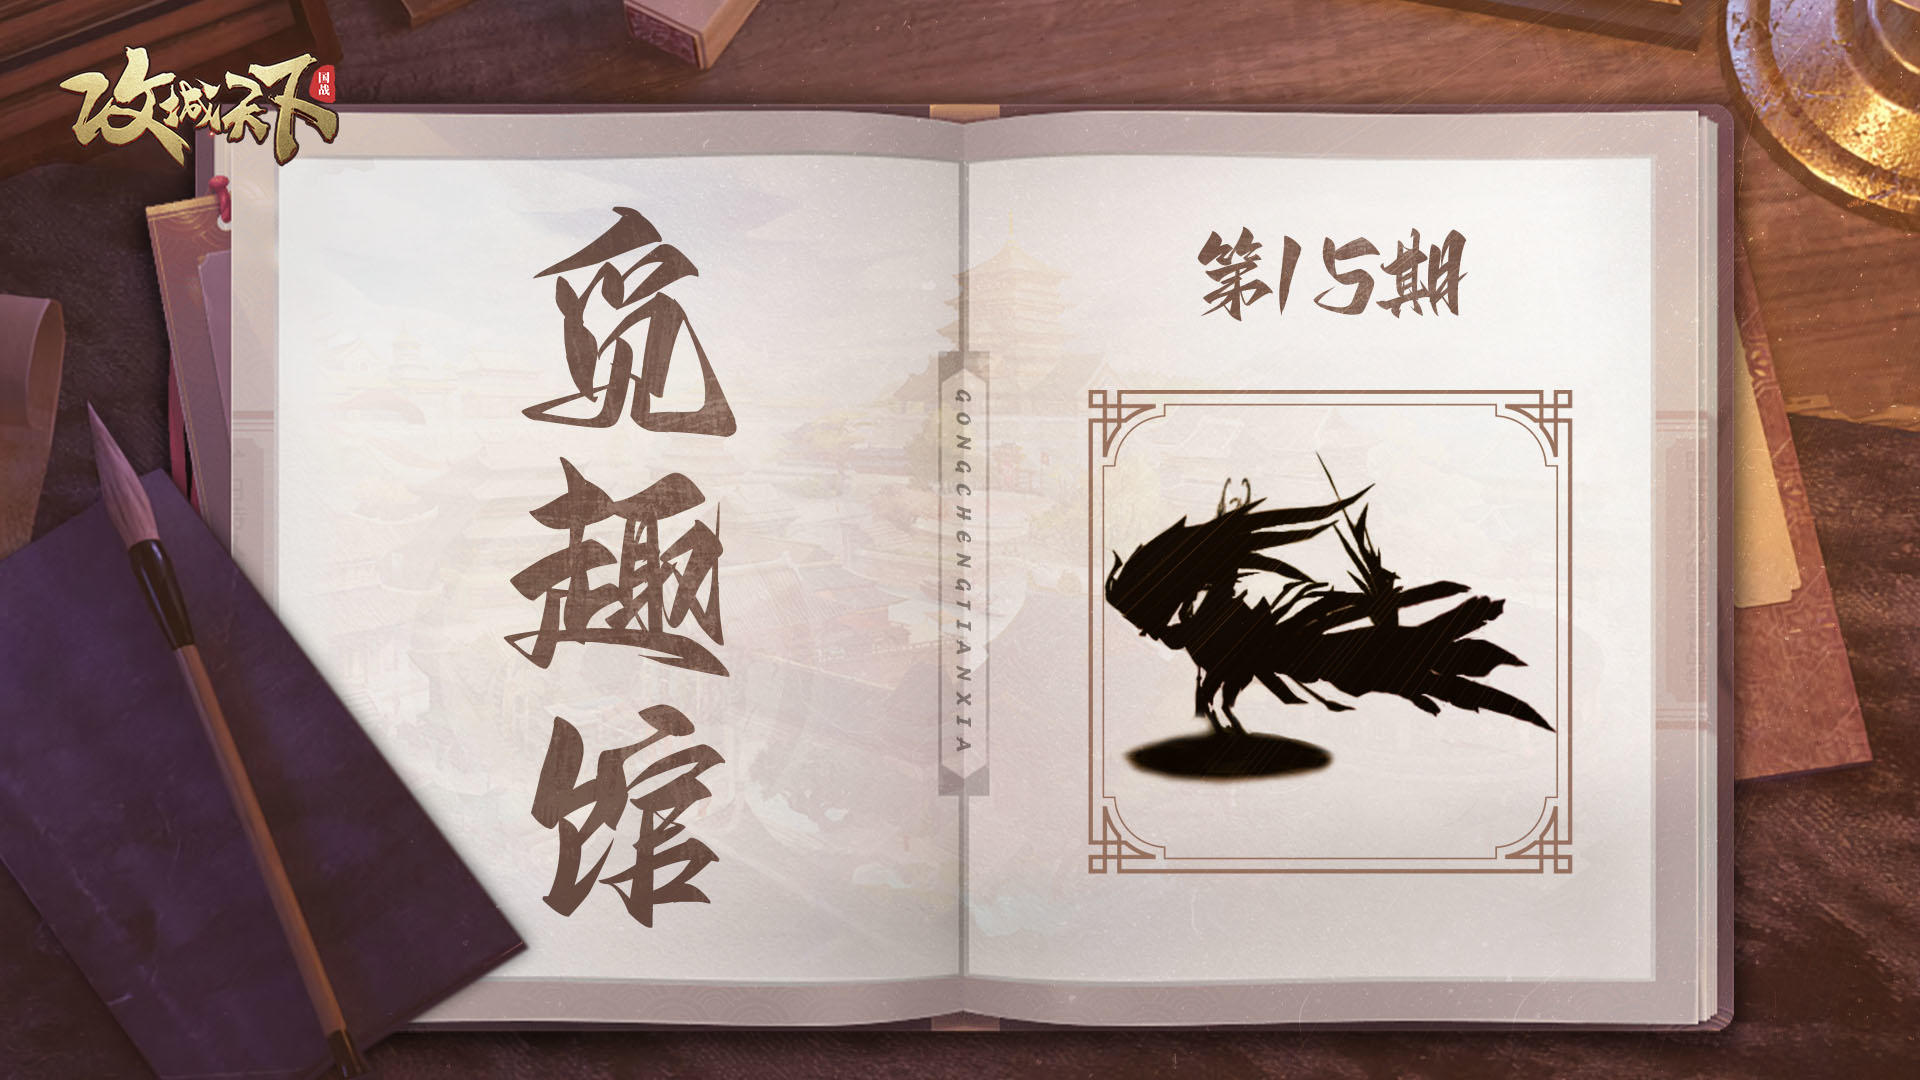 攻城天下
国战
觅趣馆
GONGCHENGTIANXIA
第15期